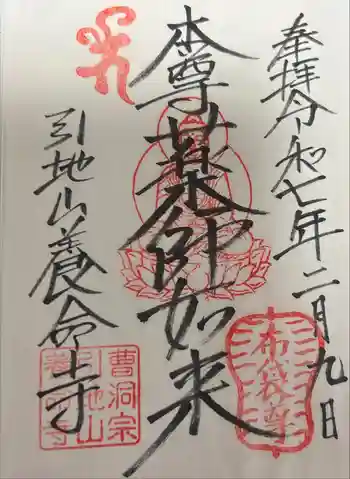 奉拝 令和七年二月九日
本尊 薬師如来
引地山養命寺
布袋尊
曹洞宗
引地山
養命寺